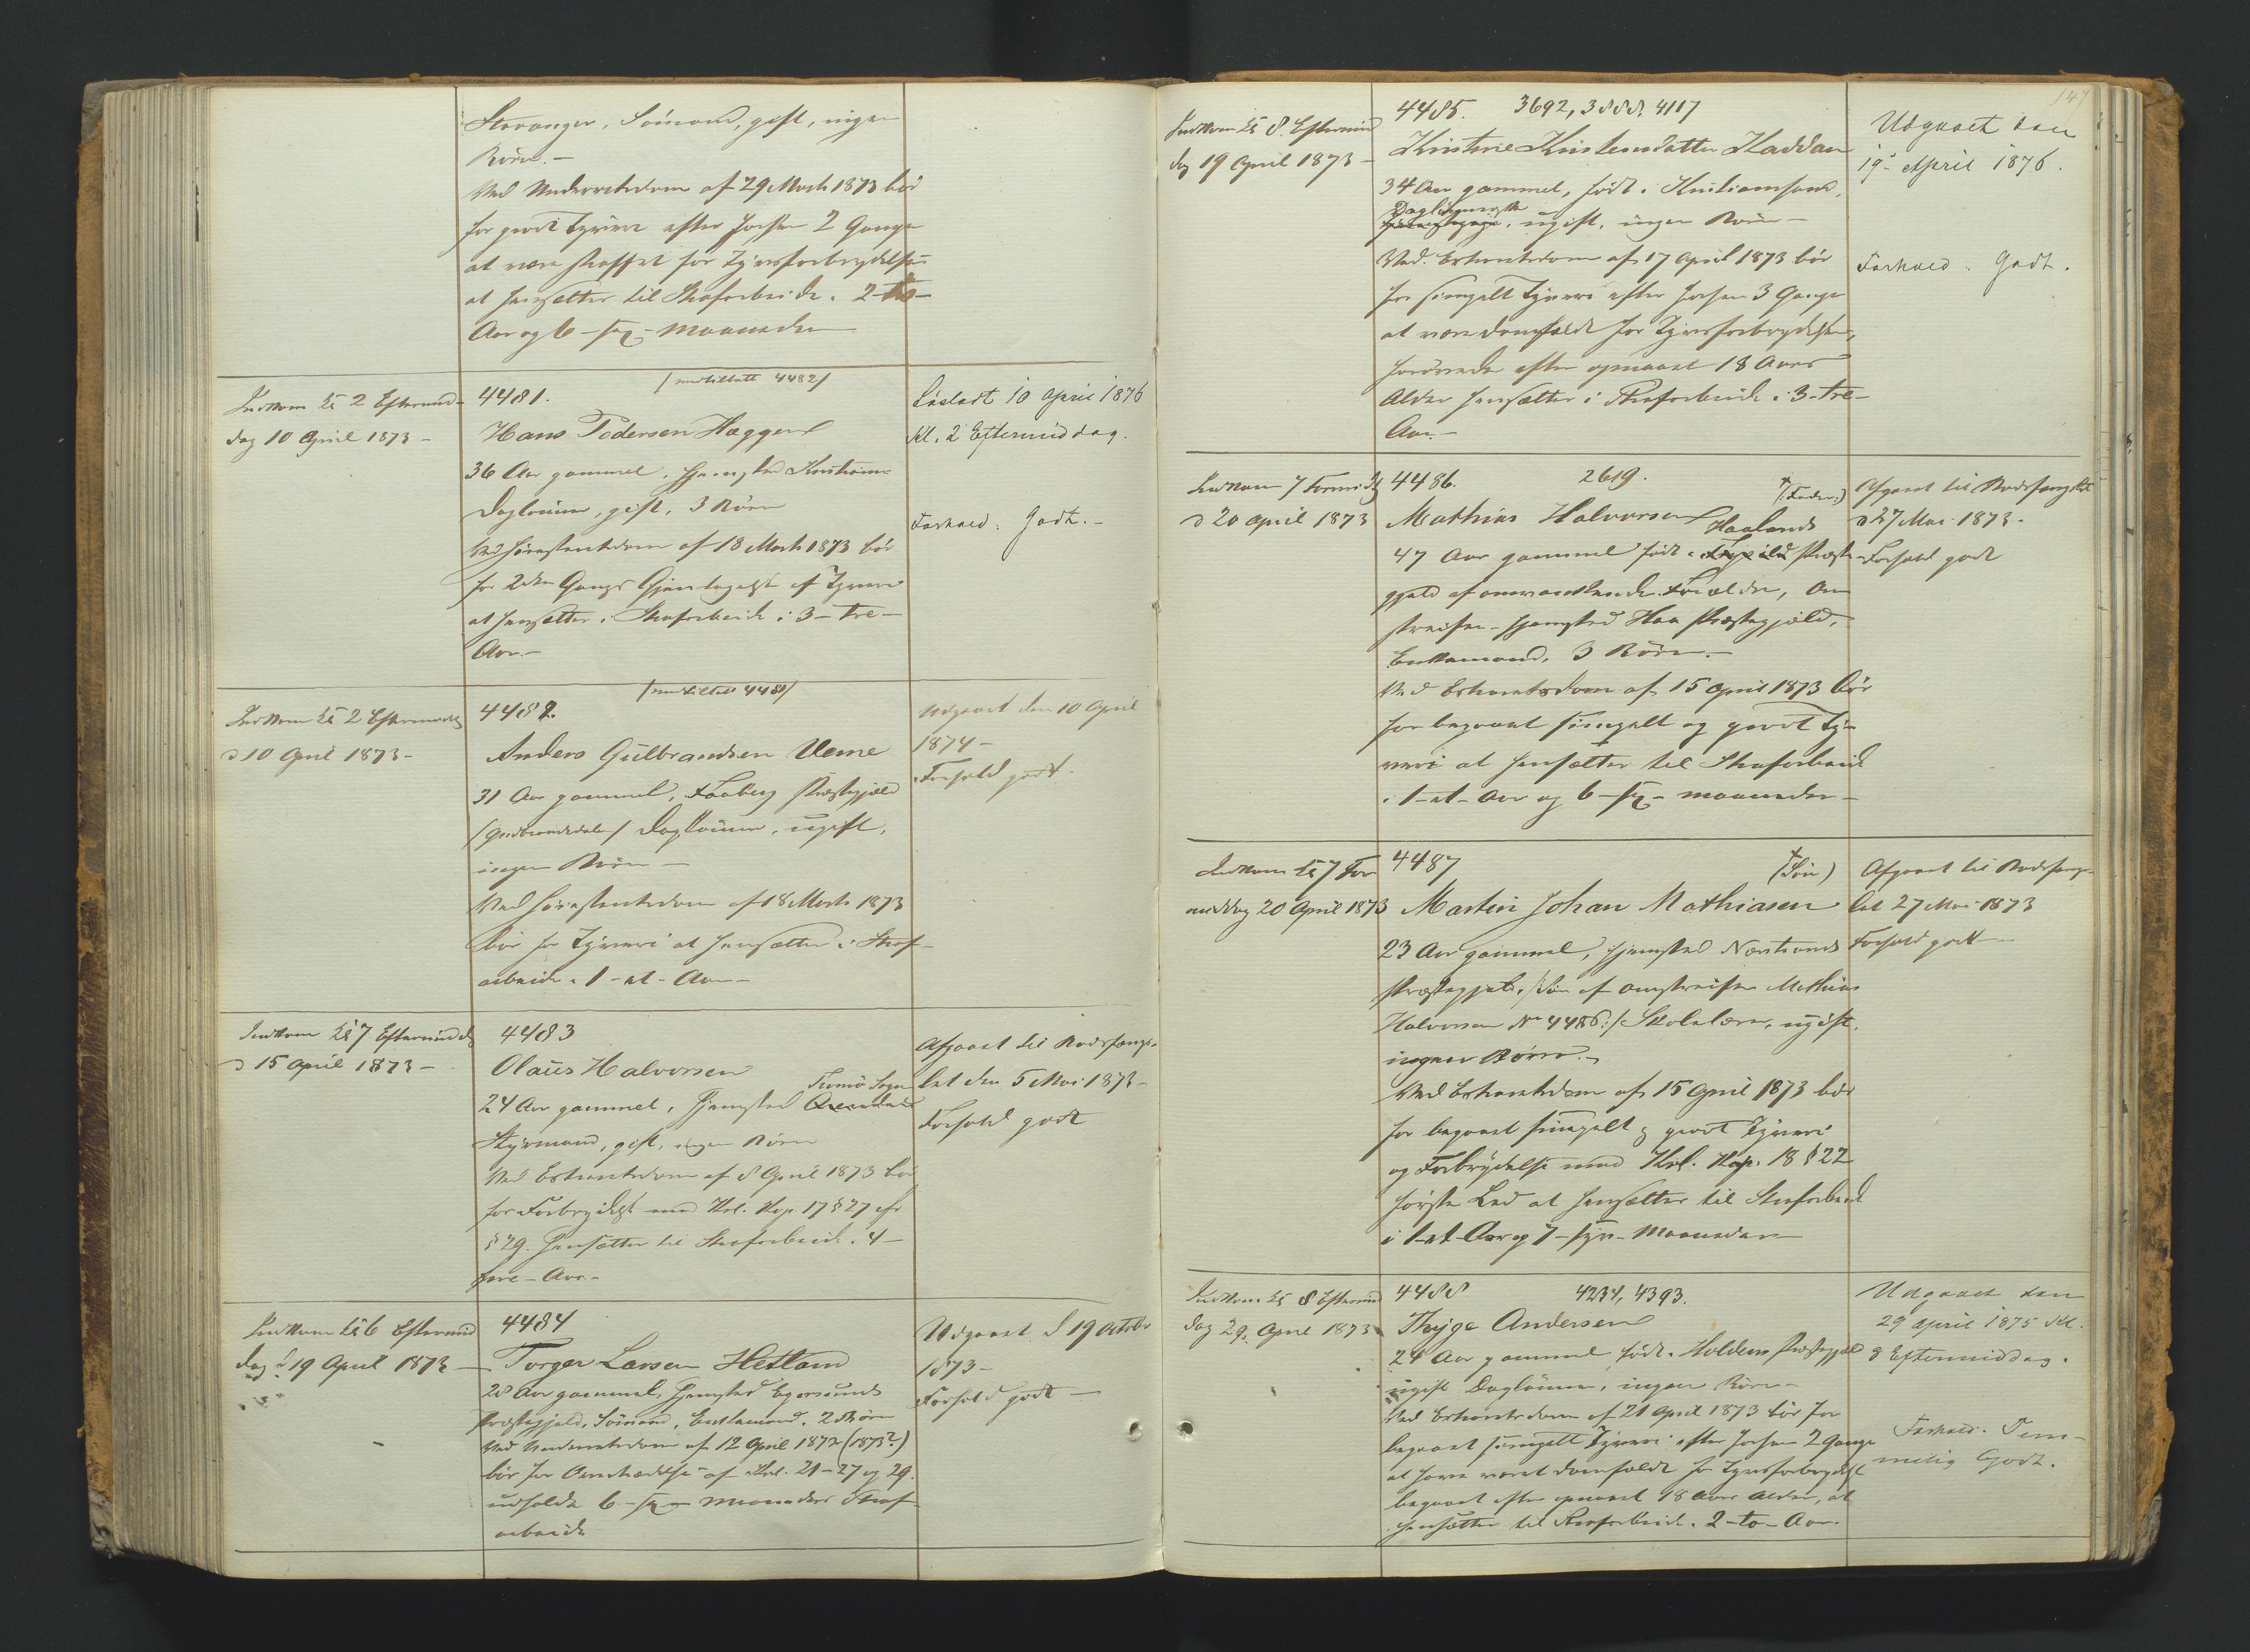 Stavanger, Sømand, gift, ingen
Børn. –
Ved Underretsdom af 29 Marts 1873 bør
for grovt Tyveri efter forhen 2 Gange
at være straffet for Tyvsforbrydelser
at hensættes til Strafarbeide i 2 – to –
Aar og 6 – sex – Maaneder
Indkom Kl 2 Eftermid-
dag 10 April 1873 –
4481. / medtiltalt 4482 /
Hans Pedersen Haggen
36 Aar gammel, Hjemsted Kristiania
Daglønner, gift, 3 Børn
Ved Høiesteretsdom af 18 Marts 1873 bør
for 2den Gangs Gjentagelse af Tyveri
at hensættes i Strafarbeide i 3 – tre –
Aar. –
Løsladt 10 April 1876
Kl. 2 Eftermiddag.
Forhold: Godt. –
Indkom Kl 2 Eftermiddag
d 10 April 1873 –
/ medtiltalt 4481 /
4482.
Anders Gulbrandsen Ueme
31 Aar gammel, Faaberg Præstegjæld
/ Gudbrandsdalen / Daglønner, ugift,
ingen Børn –
Ved Høiesteretsdom af 18 Marts 1873
bør for Tyveri at hensættes i Straf-
arbeide i 1 – et – Aar –
Udgaaet den 10 April
1874 –
Forhold godt.
Indkom Kl 7 Eftermidd
d 15 April 1873 –
4483
Olaus Halvorsen
Tromø Sogn
24 Aar gammel, Hjemsted Arendal
Styrmand, gift, ingen Børn
Ved Extraretsdom af 8 April 1873 bør
for Forbrydelse mod Krl. Kap. 17 § 27 cfr
§ 29. hensættes til Strafarbeide i 4 –
fire – Aar. –
Afgaaet til Bodsfængs-
let den 5 Mai 1873 –
Forhold godt
Indkom Kl 6 Eftermid
dag d 19 April 1873 –
4484
Torger Larsen Hetland
28 Aar gammel, Hjemsted Egersunds
Præstegjæld, Sømand, Enkemand, 2 Børn
Ved Underretsdom af 12 April 1872 (1873?)
bør for Overtrædelse af Krl. 21 – 27 og 29.
udholde 6 – sex – Maaneders Straf-
arbeide
Udgaaet d 19 October
1873 –
Forhold godt –
147
Indkom Kl 8. Eftermid
dag 19 April 1873 –
4485. 3692, 3888, 4117
Kristine Kristensdatter Haddan
34 Aar gammel, født i Kristiansand,
Daglønnerske
ugift, ingen Børn –
Ved Extraretsdom af 17 April 1873 bør
for simpelt Tyveri efter forhen 3 Gange
at være domfældt for Tyvsforbrydelser,
forøvede efter opnaaet 18 Aars
Alder hensættes i Strafarbeide i 3 – tre –
Aar. –
Udgaaet den
19de April 1876.
Forhold: Godt.
Indkom 7 Formidg
d 20 April 1873
4486. 2619.
(: Fader :)
Mathias Halvorsen
Haalands
47 Aar gammel født i Præste-
gjæld af omvandrende Forældre, Om-
streifer – Hjemsted Haa Præstegjæld,
Enkemand, 3 Børn. –
Ved Extraretsdom af 15 April 1873 bør
for begaaet simpelt og grovt Ty-
veri at hensættes til Strafarbeide
i 1 – et – Aar og 6 – sex – Maaneder –
Afgaaet til Bodsfængslet
d 27 Mai 1873 –
Forhold godt
Indkom Kl 7 For
middag 20 April 1873
4487
(Søn)
Martin Johan Mathiasen
23 Aar gammel, Hjemsted Nærstrands
Præstegjæld, /: Søn af Omstreifer Mathias
Halvorsen No 4486 :/ Skolelærer, ugift,
ingen Børn. –
Ved Extraretsdom af 15 April 1873 bør
for begaaet simpelt og grovt Tyveri
og Forbrydelse mod Krl. Kap. 18 § 22
første Led at hensættes til Strafarbeide
i 1 – et – Aar og 7 – syv – Maaneder –
Afgaaet til Bodsfængs-
let 27 Mai 1873
Forhold godt –
Indkom Kl 8 Eftermid
dag 29. April 1873
4488 4234, 4393.
Thyge Andersen
24 Aar gammel født i Holdens Præstegjæld
ugift Daglønner, ingen Børn –
Ved Extraretsdom af 21 April 1873 bør for
begaaet simpelt Tyveri efter forhen 2 Gange
at have været domfældt for Tyvsforbrydelse
begaaet efter opnaaet 18 Aars Alder, at
hensættes til Strafarbeide i 2 – to – Aar.
Udgaaet den
29 April 1875 Kl.
8 Eftermiddag.
Forhold: Tem-
melig Godt.